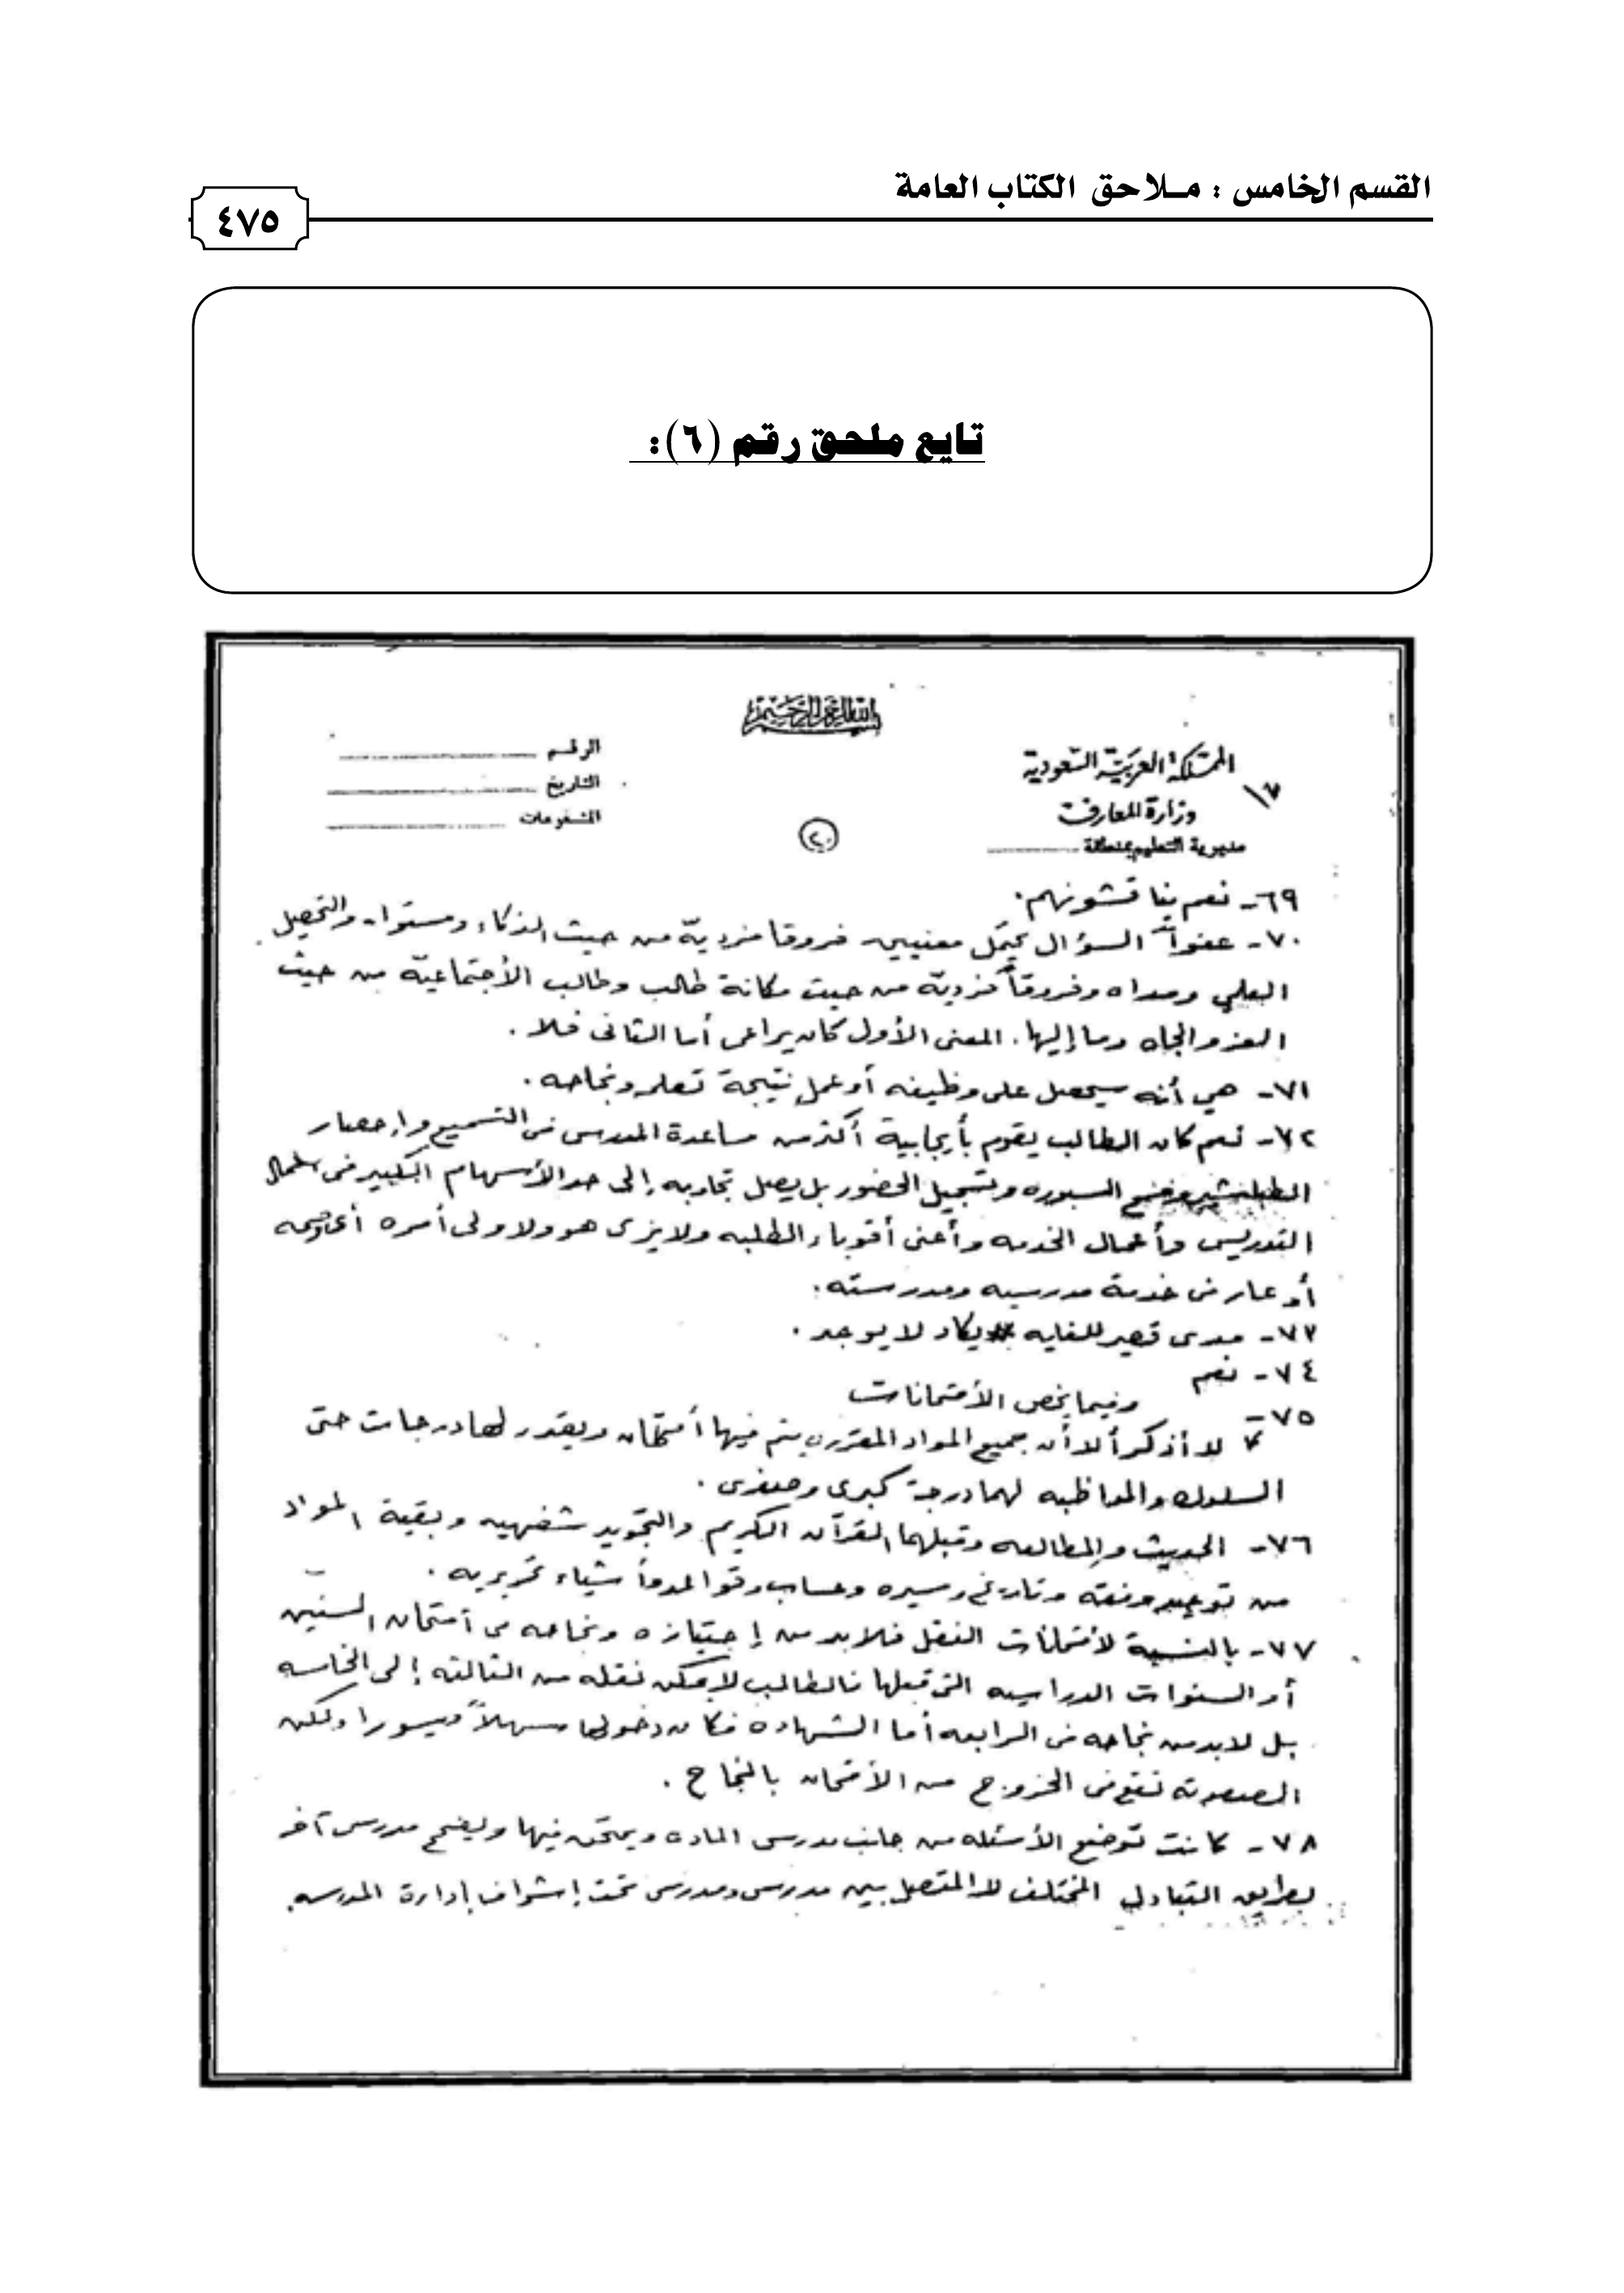 القسم الخامس : مـلاحق الكتاب العامة
٤٧٥
تابع ملحق رقم (٦):
بسم الله الرحمن الرحيم
المملكة العربية السعودية
وزارة المعارف
مديرية التعليم بمنطقة
الرقم
التاريخ
المشفوعات
١٧
٢٠
٦٩- نعم يناقشونهم.
٧٠- عفواً السؤال يحتمل معنيين فروقا فردية من حيث الذكاء ومستواه والتحصيل
العلمي ومداه وفروقاً فردية من حيث مكانة طالب وطالب الأجتماعية من حيث
العز والجاه وما إليها. المعنى الأول كان يراعى أما الثانى فلا.
٧١- هي أنه سيحصل على وظيفه أو عمل نتيجة تعلمه ونجاحه.
٧٢- نعم كان الطالب يقوم بأيجابية أكثر من مساعدة المدرس فى التسميع وإحضار
السبوره وتسجيل الحضور بل يصل تجاربه إلى حد الأسهام الكبير فى
التدريس وأعمال الخدمه وأعنى أقوياء الطلبه ولا يرى هو ولا ولى أمره
أو عار فى خدمة مدرسيه ومدرسته.
٧٣- مدى قصير للغايه يكاد لا يوجد.
٧٤- نعم
وفيما يخص الأمتحانات
٧٥- لا أذكر ألا أن جميع المواد المقرره يتم فيها أمتحان ويقدر لها درجات حتى
السلوك والمواظبه لهما درجة كبرى وصغرى.
٧٦- الحديث والمطالعه وقبلهما القرآن الكريم والتجويد شفهيه وبقية المواد
من توحيد وفقه وتاريخ وسيره وحساب وقواعد وأشياء تحريريه.
٧٧- بالنسبة لأمتحانات النقل فلابد من إجتيازه ونجاحه فى أمتحان السنين
أو السنوات الدراسيه التى قبلها فالطالب لا يمكن نقله من الثالثه إلى الخامسه
بل لابد من نجاحه فى الرابعه أما الشهاده فكان دخولها سهلاً وميسورا ولكن
الصعوبه تقع فى الخروج من الأمتحان بالنجاح.
٧٨- كانت توضع الأسئله من جانب مدرس الماده ويمتحن فيها ويصحح مدرس آخر
بطريق التبادل المختلف لا المتصل بين مدرس ومدرس تحت إشراف إدارة المدرسه.